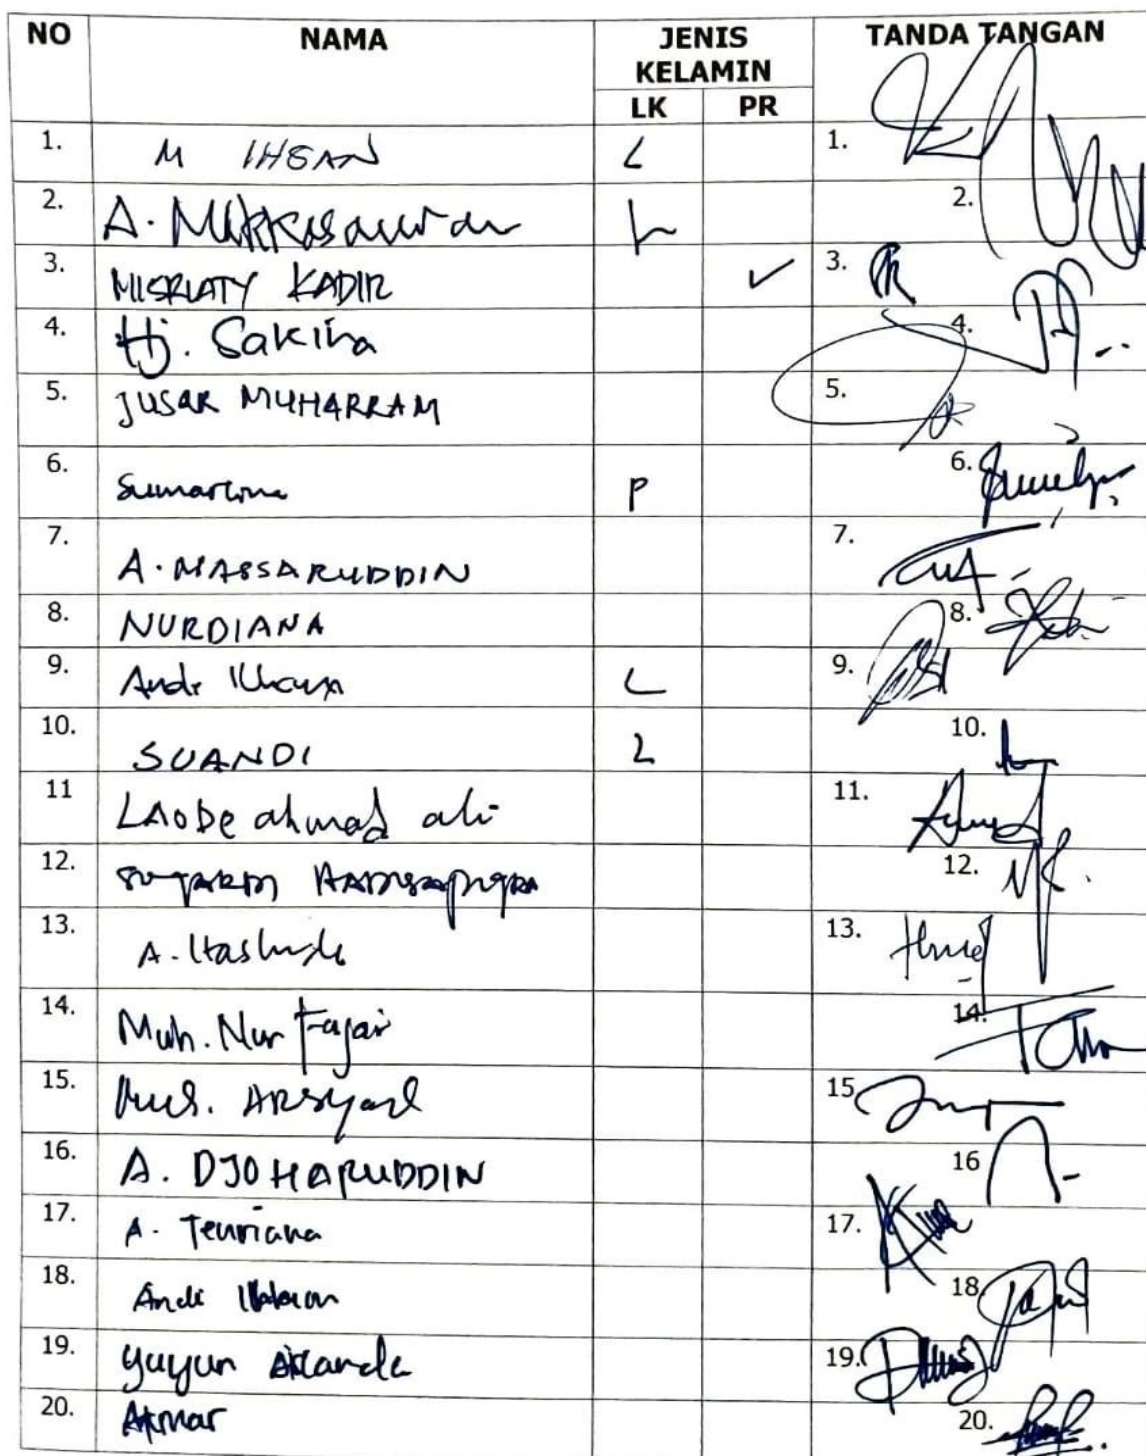 NO NAMA JENIS KELAMIN TANDA TANGAN
LK PR
1. M IHSAN L 1.
2. A. Mukkasawwar L 2.
3. MISRIATY KADIR ✓ 3.
4. Hj. Sakina 4.
5. JUSAR MUHARRAM 5.
6. Sumartina P 6.
7. A. MASSARUDDIN 7.
8. NURDIANA 8.
9. Andi L 9.
10. SUANDI L 10.
11 LAODE ahmad ali 11.
12. 12.
13. A. 13.
14. Muh. Nur Fajar 14.
15. Muh. ARSyad 15
16. A. DJOHARUDDIN 16
17. A. Tenriana 17.
18. Andi 18.
19. yuyun 19.
20. Akmar 20.